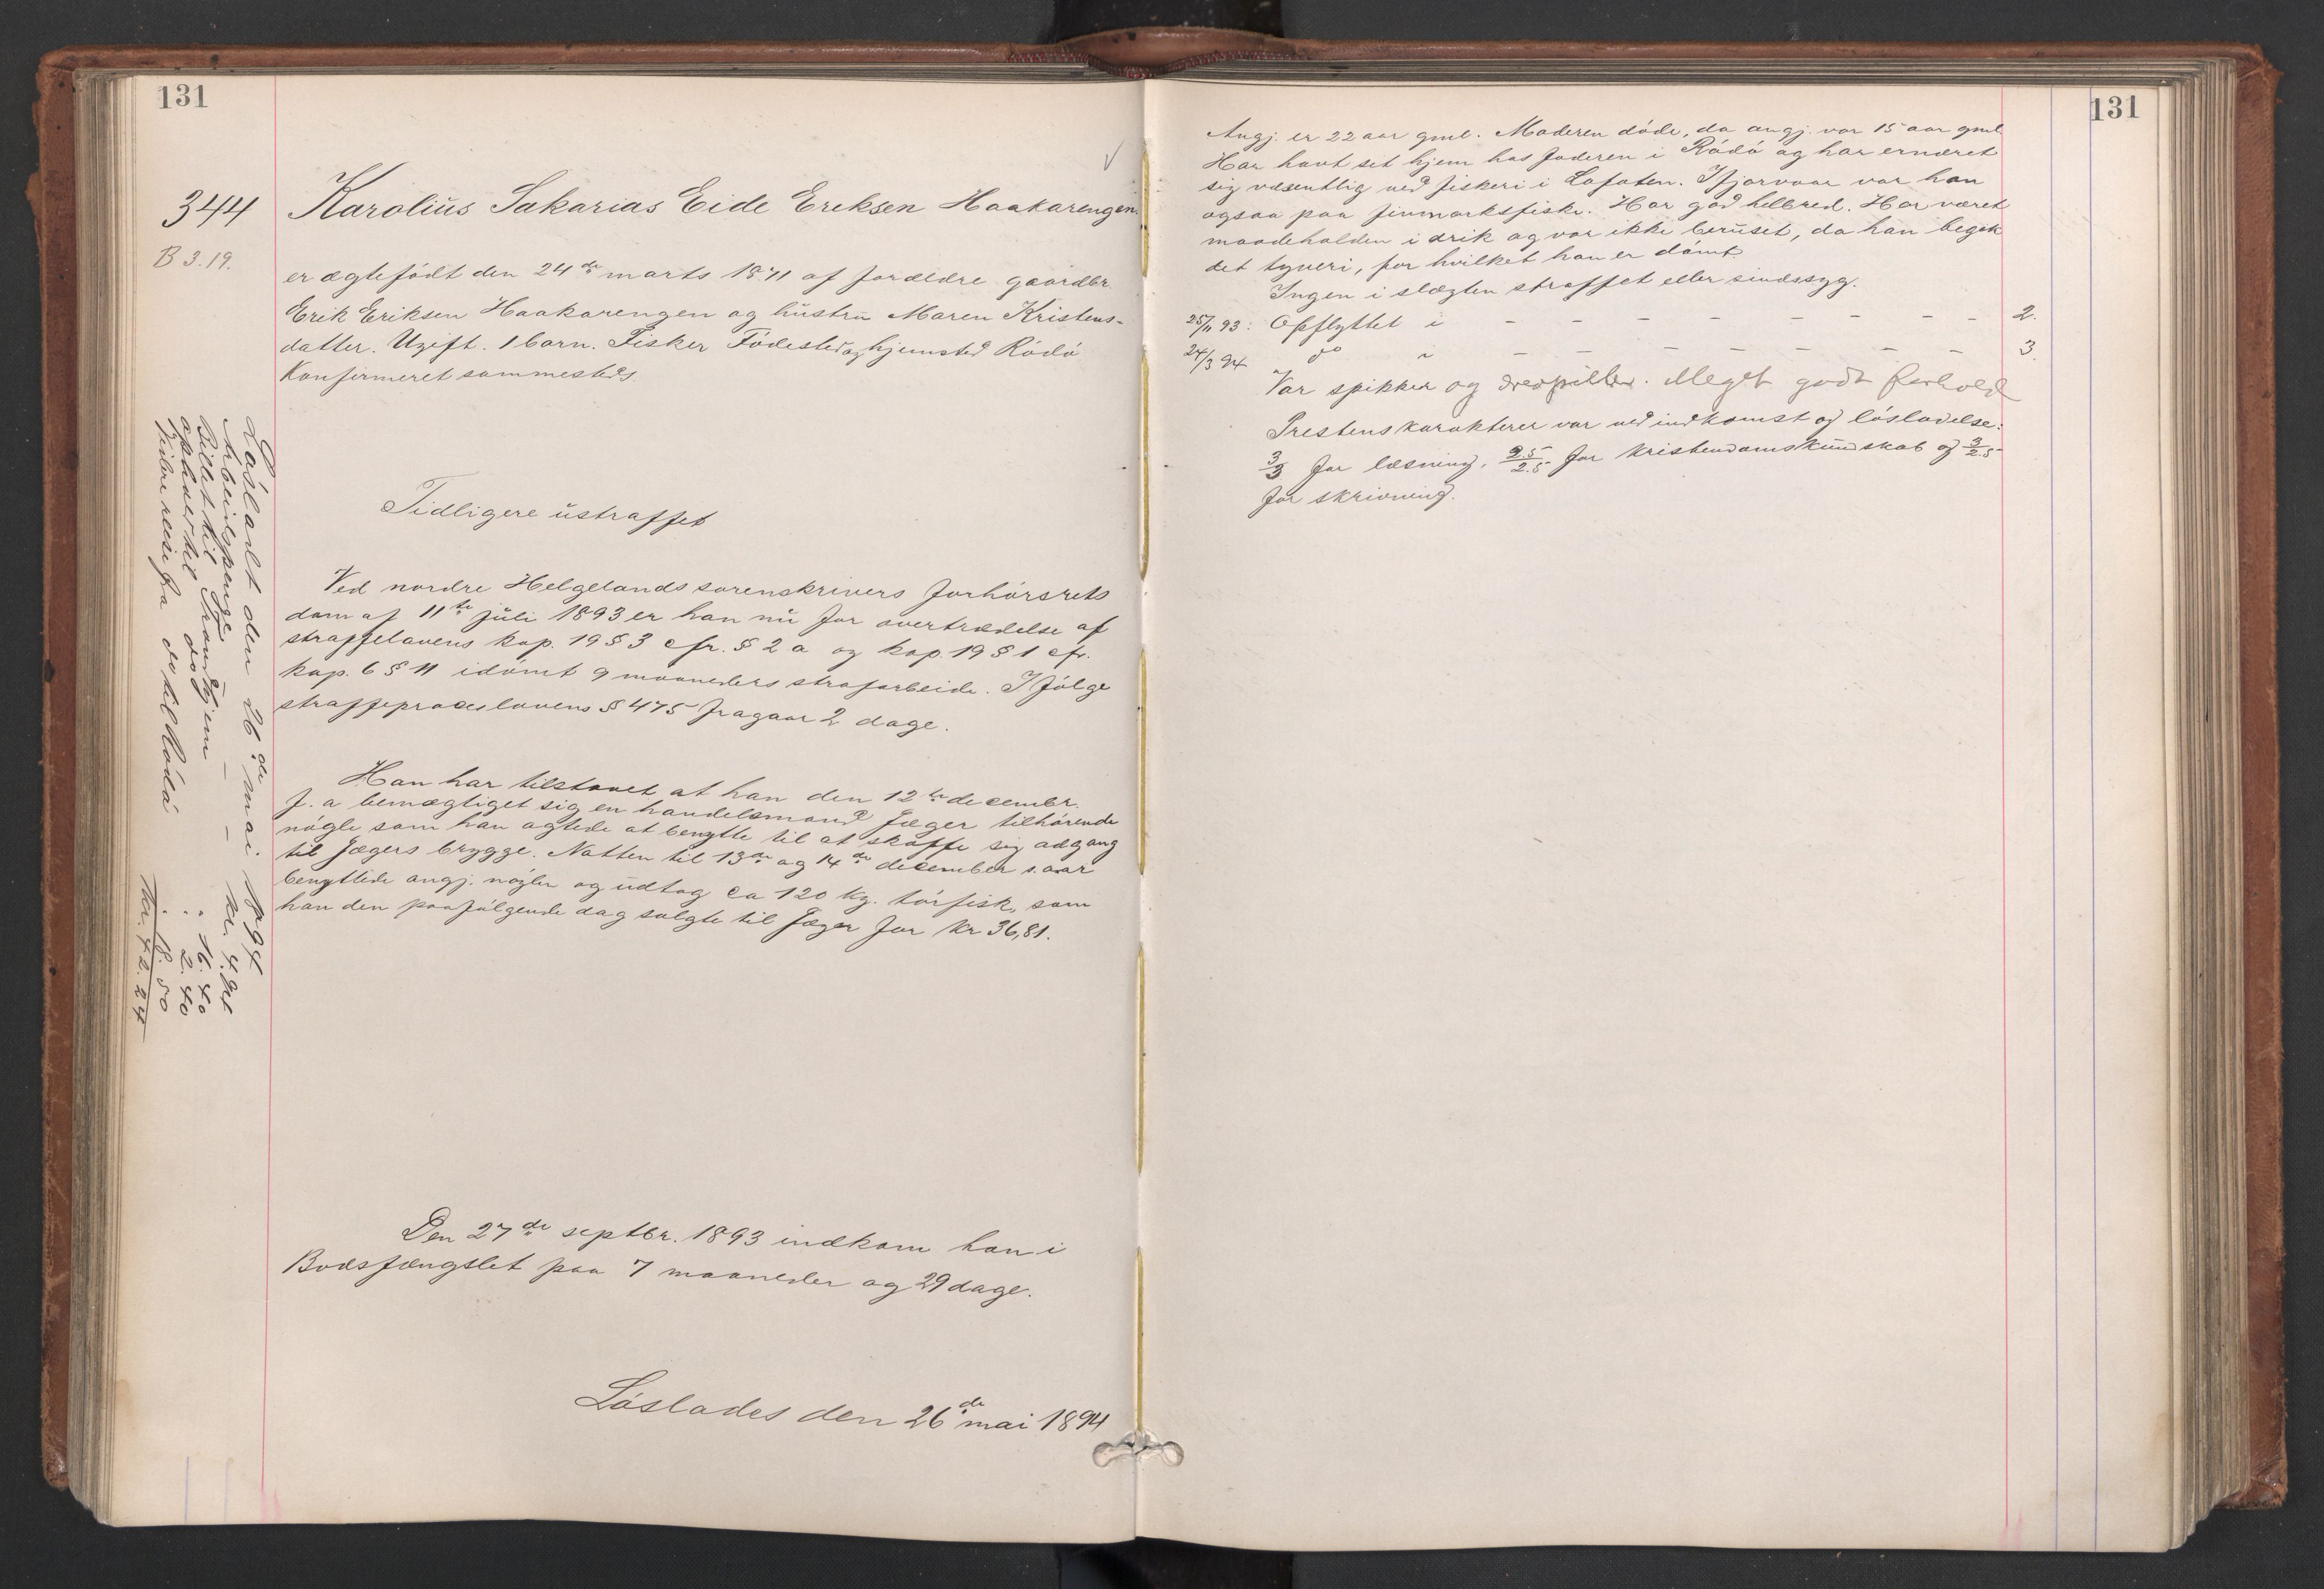 131
344
B 3.19.
Karolius Sakarias Eide Ereksen Haakarengen.
er ægtefødt den 24de marts 1871 af forældre gaardbr.
Erik Eriksen Haakarengen og hustru Maren Kristens-
datter. Ugift. 1 barn. Fisker Fødested og hjemsted Rødø
Konfirmeret sammesteds
Tidligere ustraffet
Ved nordre Helgelands sorenskrivers forhørsrets
dom af 11te juli 1893 er han nu for overtrædelse af
straffelovens kap. 19 § 3 cfr. § 2 a og kap. 19 § 1 cfr.
kap. 6 § 11 idømt 9 maaneders strafarbeide. Ifølge
straffeproceslovens § 475 fragaar 2 dage.
Han har tilstaaet at han den 12te decembr.
f. a bemægtiget sig en handelsmand Jæger tilhørende
nøgle som han agtede at benytte til at skaffe sig adgang
til Jægers brygge. Natten til 13de og 14de december s. aar
benyttede angj. nøglen og udtog ca 120 kg. tørfisk, som
han den paafølgende dag solgte til Jæger for kr 36,81.
Den 27de septbr. 1893 indkom han i
Bodsfængslet paa 7 maaneder og 29 dage.
Løslades den 26de mai 1894
Løsladt den 26de mai 1894
Arbeidspenge – – kr.
Billet til Trondhjem " 16.40
ophold til do " 2.40
Videre reise fra do til Rødø " 8.50
Kr. 42.24
131
Angj. er 22 aar gml. Moderen døde, da angj. var 15 aar gml
Har havt sit hjem hos faderen i Rødø og har ernæret
sig væsentlig ved fiskeri i Lofoten. Ifjorvaar var han
ogsaa paa finmarksfiske. Har god helbred. Har været
maadeholden i drik og var ikke beruset, da han begik
det tyveri, for hvilket han er dømt
Ingen i slægten straffet eller sindssyg.
25/11 93: Opflyttet i – – – – – – – – 2.
24/3 94 do i – – – – – – – 3.
Var spikker og drevpiller. Meget godt forhold
Prestens karakterer var ved indkomst og løsladelse:
3/3 for læsning, 2.5/2.5 for kristendomskundskab og 3/2.5
for skrivning.